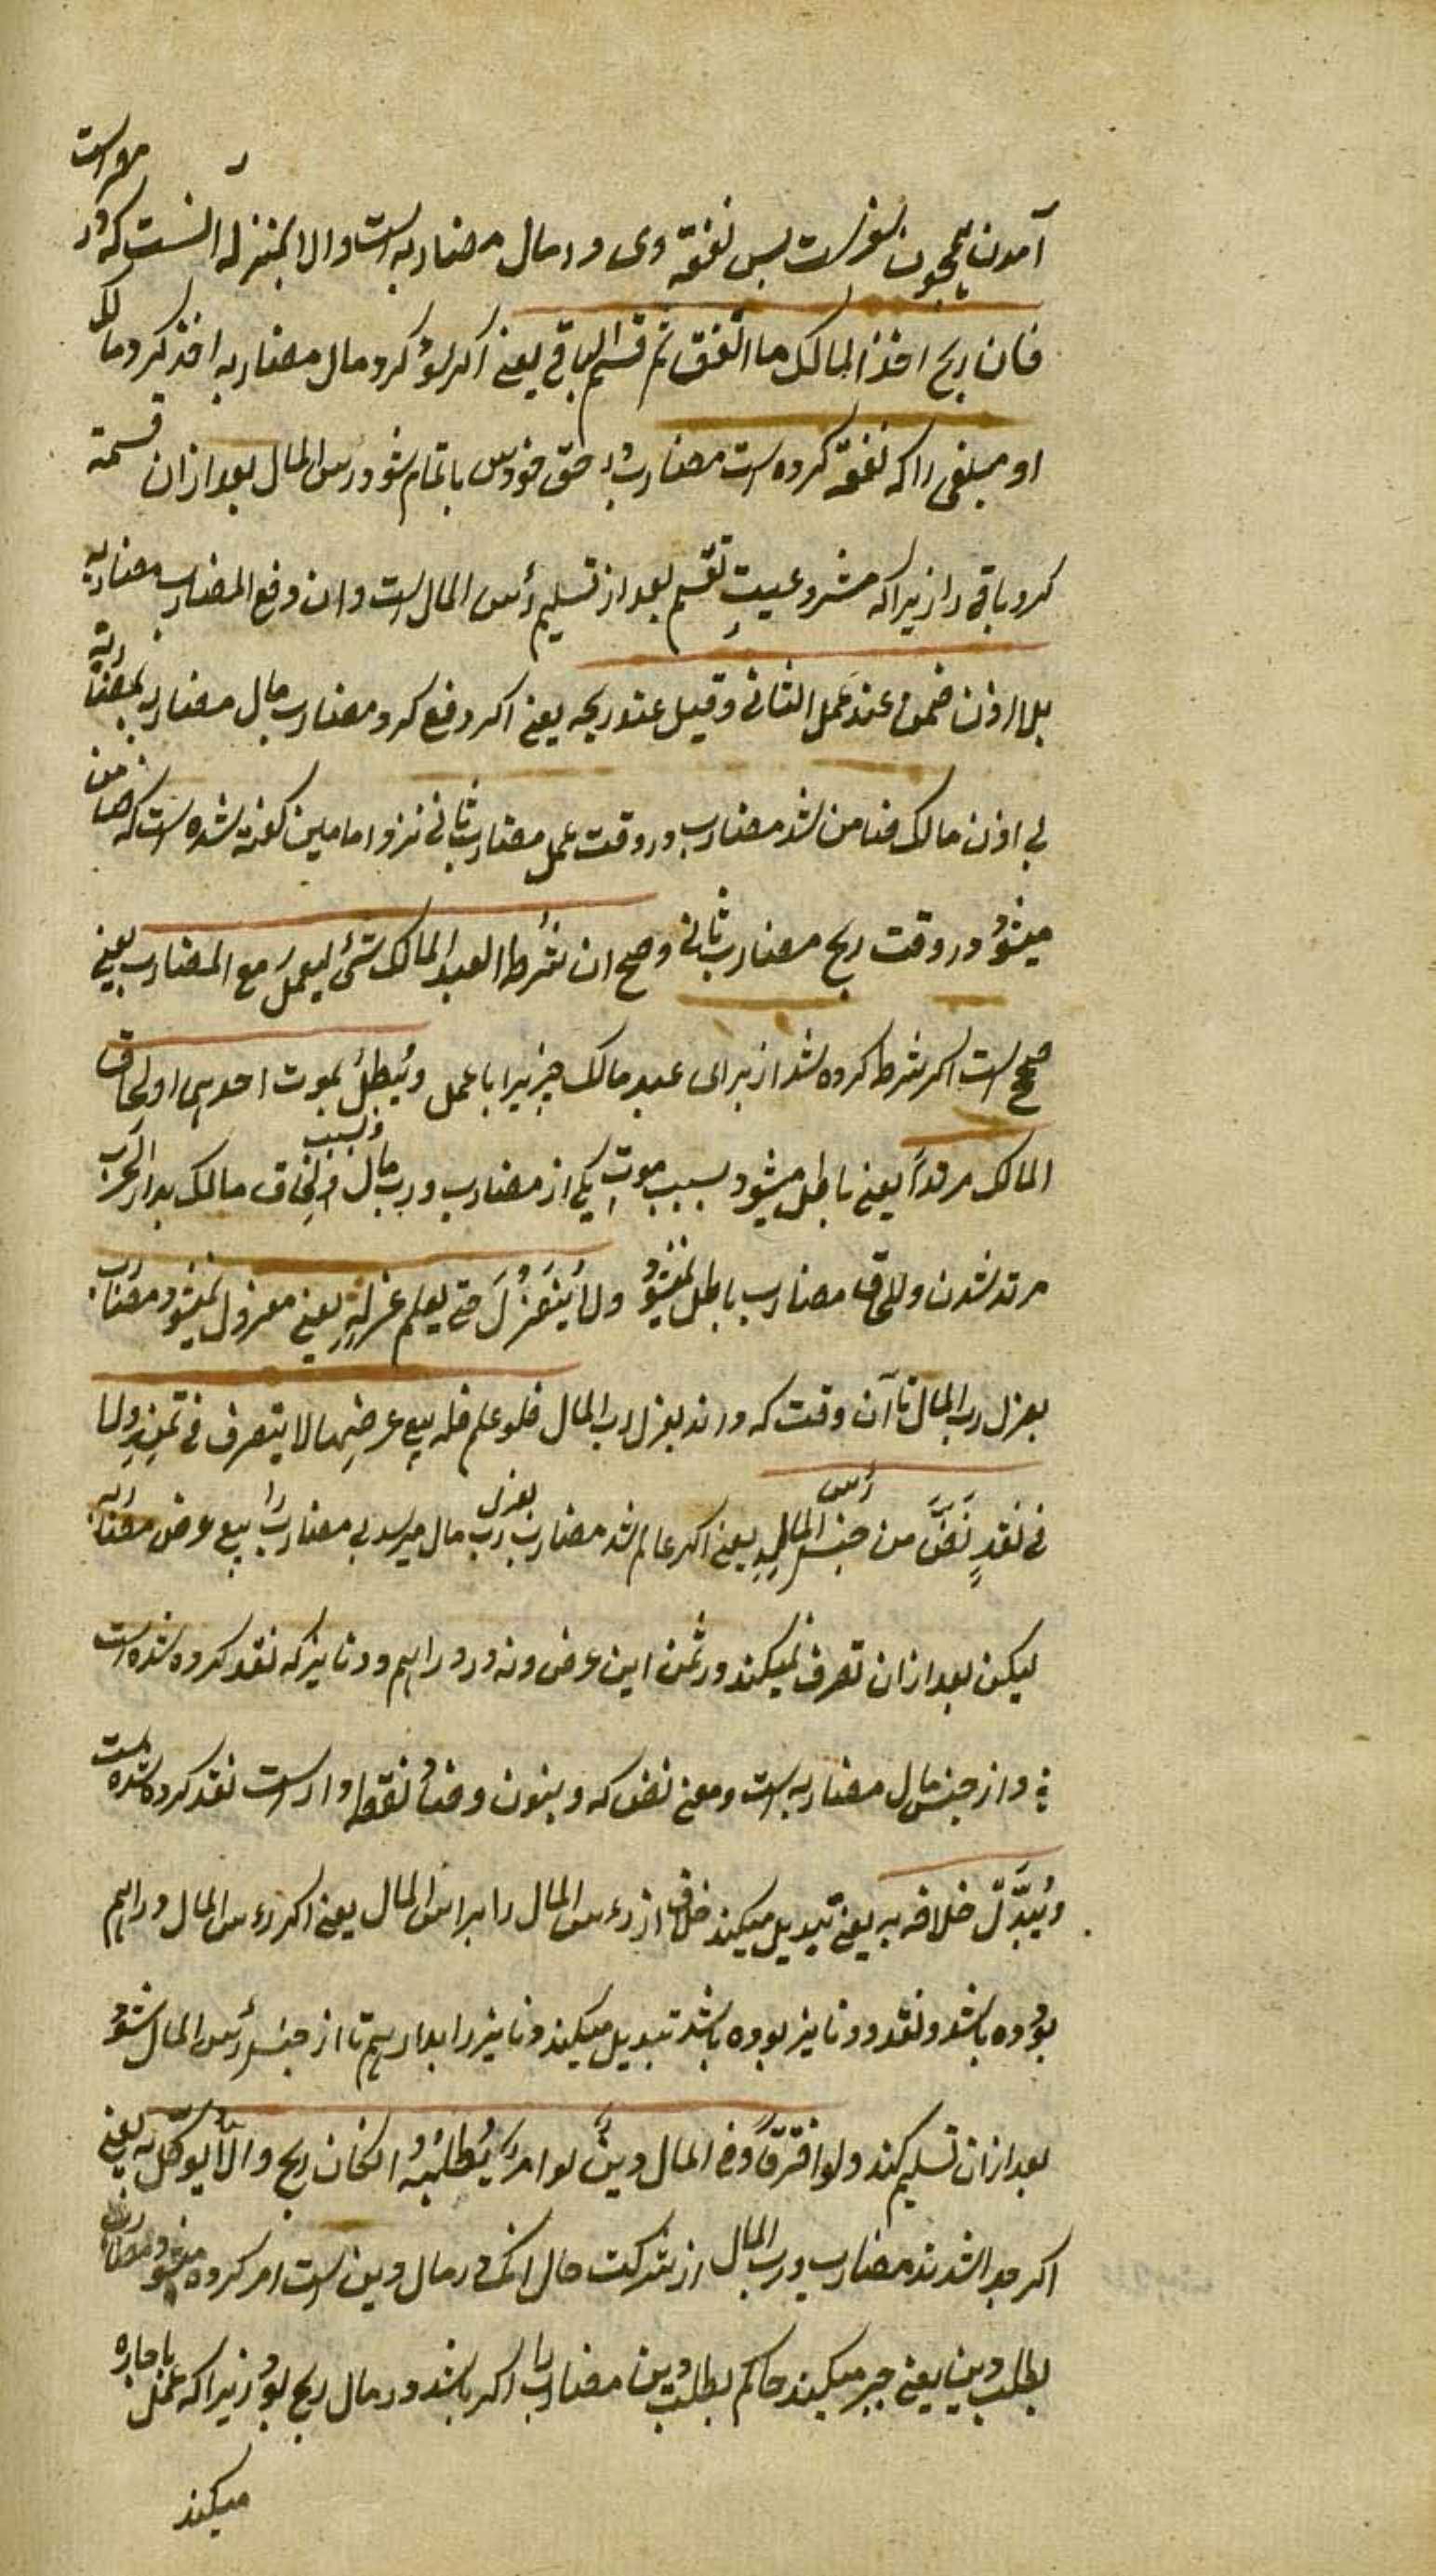 آمدن همچون سفرست پس نفقه وی در مال مضاربه است والا بمنزله آنست که در شهر است
فان ربح اخذ المالک ما انفق ثم قسم الباقی یعنی اکر سود کرد مال مضاربه اخذ کرد مالک
او مبلغی را که نفقه کرده است مضارب در حق خودس تا تمام شود رأس المال بعد ازان قسمة
کرد باقی را زیرا که مشروعیت تقسیم بعد از تسلیم رأس المال است وان دفع المضارب مضاربه
بلا اذن ضمن عند عمل الثانی وقیل عند ربحه یعنی اکر دفع کرد مضارب مال مضاربه بمضاربه
بی اذن مالک ضامن شد مضارب در وقت عمل مضارب ثانی نزد امامین کفته شده است که ضامن
میشود در وقت ربح مضارب ثانی وصح ان شرط العبد المالک شئ لیعمل مع المضارب یعنی
صحیح است اکر شرط کرده شد از برای عبد مالک چیزیرا با عمل ویبطل بموت احدهما ولحاق
المالک مرتداً یعنی باطل میشود بسبب موت یکی از مضارب ورب مال وبسبب لحاق مالک بدار الحرب
مرتد شدن ولحاق مضارب باطل نمیشود ولا ینعزل حتی یعلم عزله یعنی معزول نمیشود مضارب
بعزل رب المال تا آن وقت که داند بعزل رب المال فلو علم فله بیع عرضها لا یتصرف فی ثمنه ولا
فی نقد نض من جنس رأس المال یعنی اکر عالم شد مضارب بعزل رب مال میرسد بی مضارب را بیع عرض مضاربه
لیکن بعد ازان تصرف نمیکند در ثمن این عرض ونه در دراهم ودنانیر که نقد کرده شده است
واز جنس مال مضاربه است ومعنی نض که وبنون وضاد نقطه دار است نقد کرده شده است
ویبدل خلافه به یعنی تبدیل میکند خلاف از رءس المال را برأس المال یعنی اکر رءس المال دراهم
بوده باشد ونقد ودنانیر بوده باشد تبدیل میکند دنانیر را بدراهم تا از جنس رأس المال شود
بعد ازان تسلیم کند ولو افترقا وفی المال دین لو امر یطلبه ان کان ربح والا یوکل به یعنی
اکر جدا شدند مضارب ورب المال از شرکت حال انک در مال دین است امر کرده میشود مضارب
بطلب دین یعنی جبر میکند حاکم بطلب دین مضارب را اکر باشد در مال ربح بود زیرا که عمل باجاره
میکند